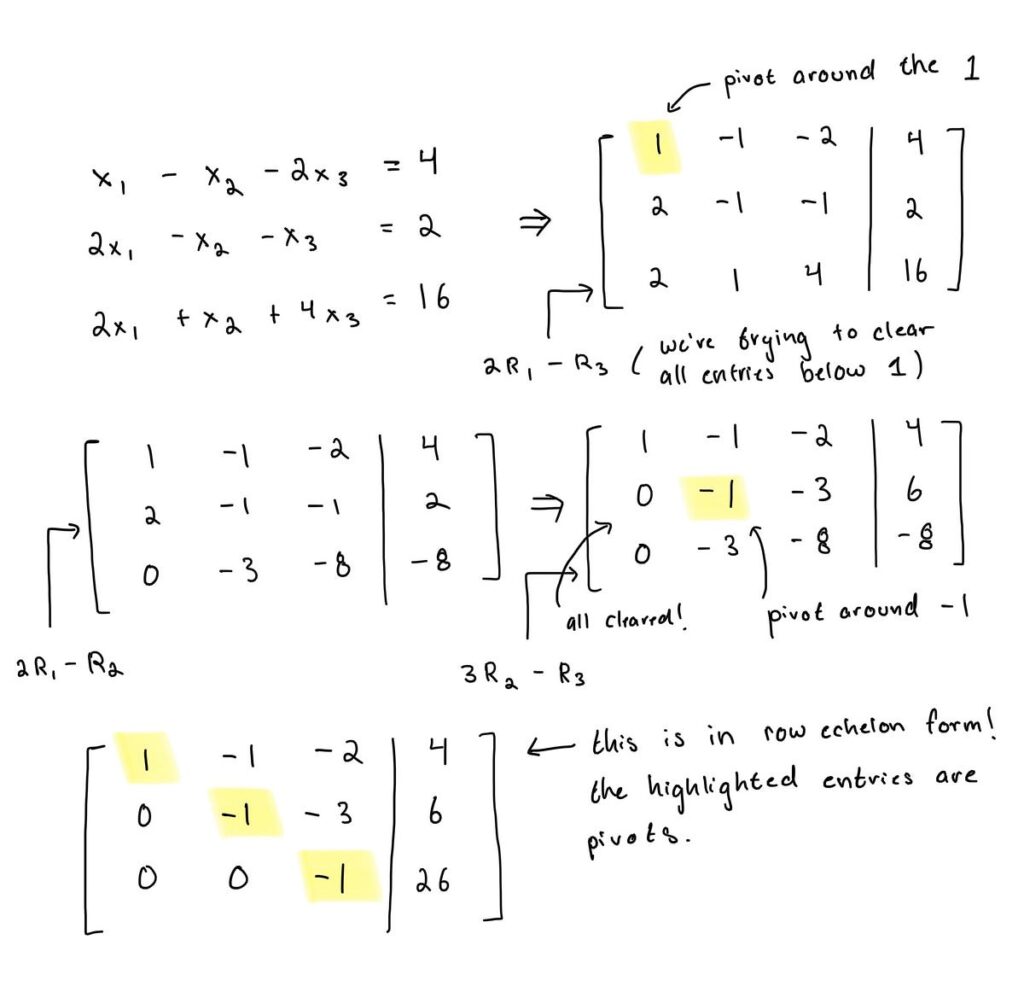 pivot around the 1
x₁ - x₂ - 2x₃ = 4
2x₁ - x₂ - x₃ = 2
2x₁ + x₂ + 4x₃ = 16
⇒
1 -1 -2 | 4
2 -1 -1 | 2
2 1 4 | 16
2R₁ - R₃ (we're trying to clear
all entries below 1)
1 -1 -2 | 4
2 -1 -1 | 2
0 -3 -8 | -8
2R₁ - R₂
⇒
1 -1 -2 | 4
0 -1 -3 | 6
0 -3 -8 | -8
all cleared!
pivot around -1
3R₂ - R₃
1 -1 -2 | 4
0 -1 -3 | 6
0 0 -1 | 26
this is in row echelon form!
the highlighted entries are
pivots.